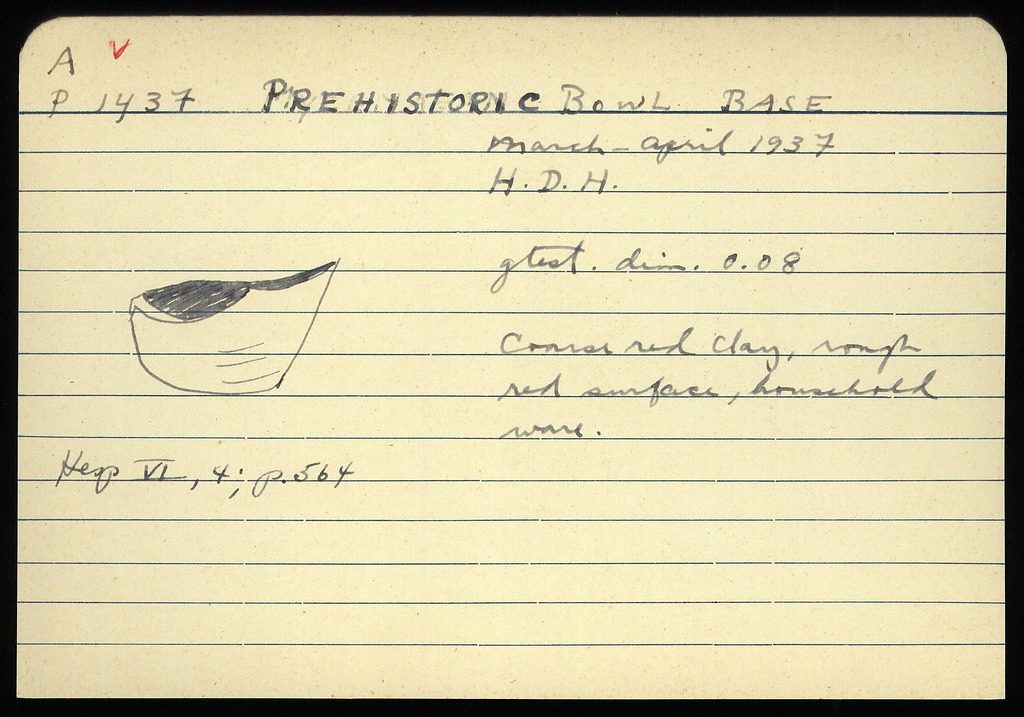 A ✓
P 1437 PREHISTORIC BOWL BASE
March-April 1937
H.D.H.
gtest. dim. 0.08
Coarse red clay, rough
red surface, household
ware.
Hesp VI, 4; p.564